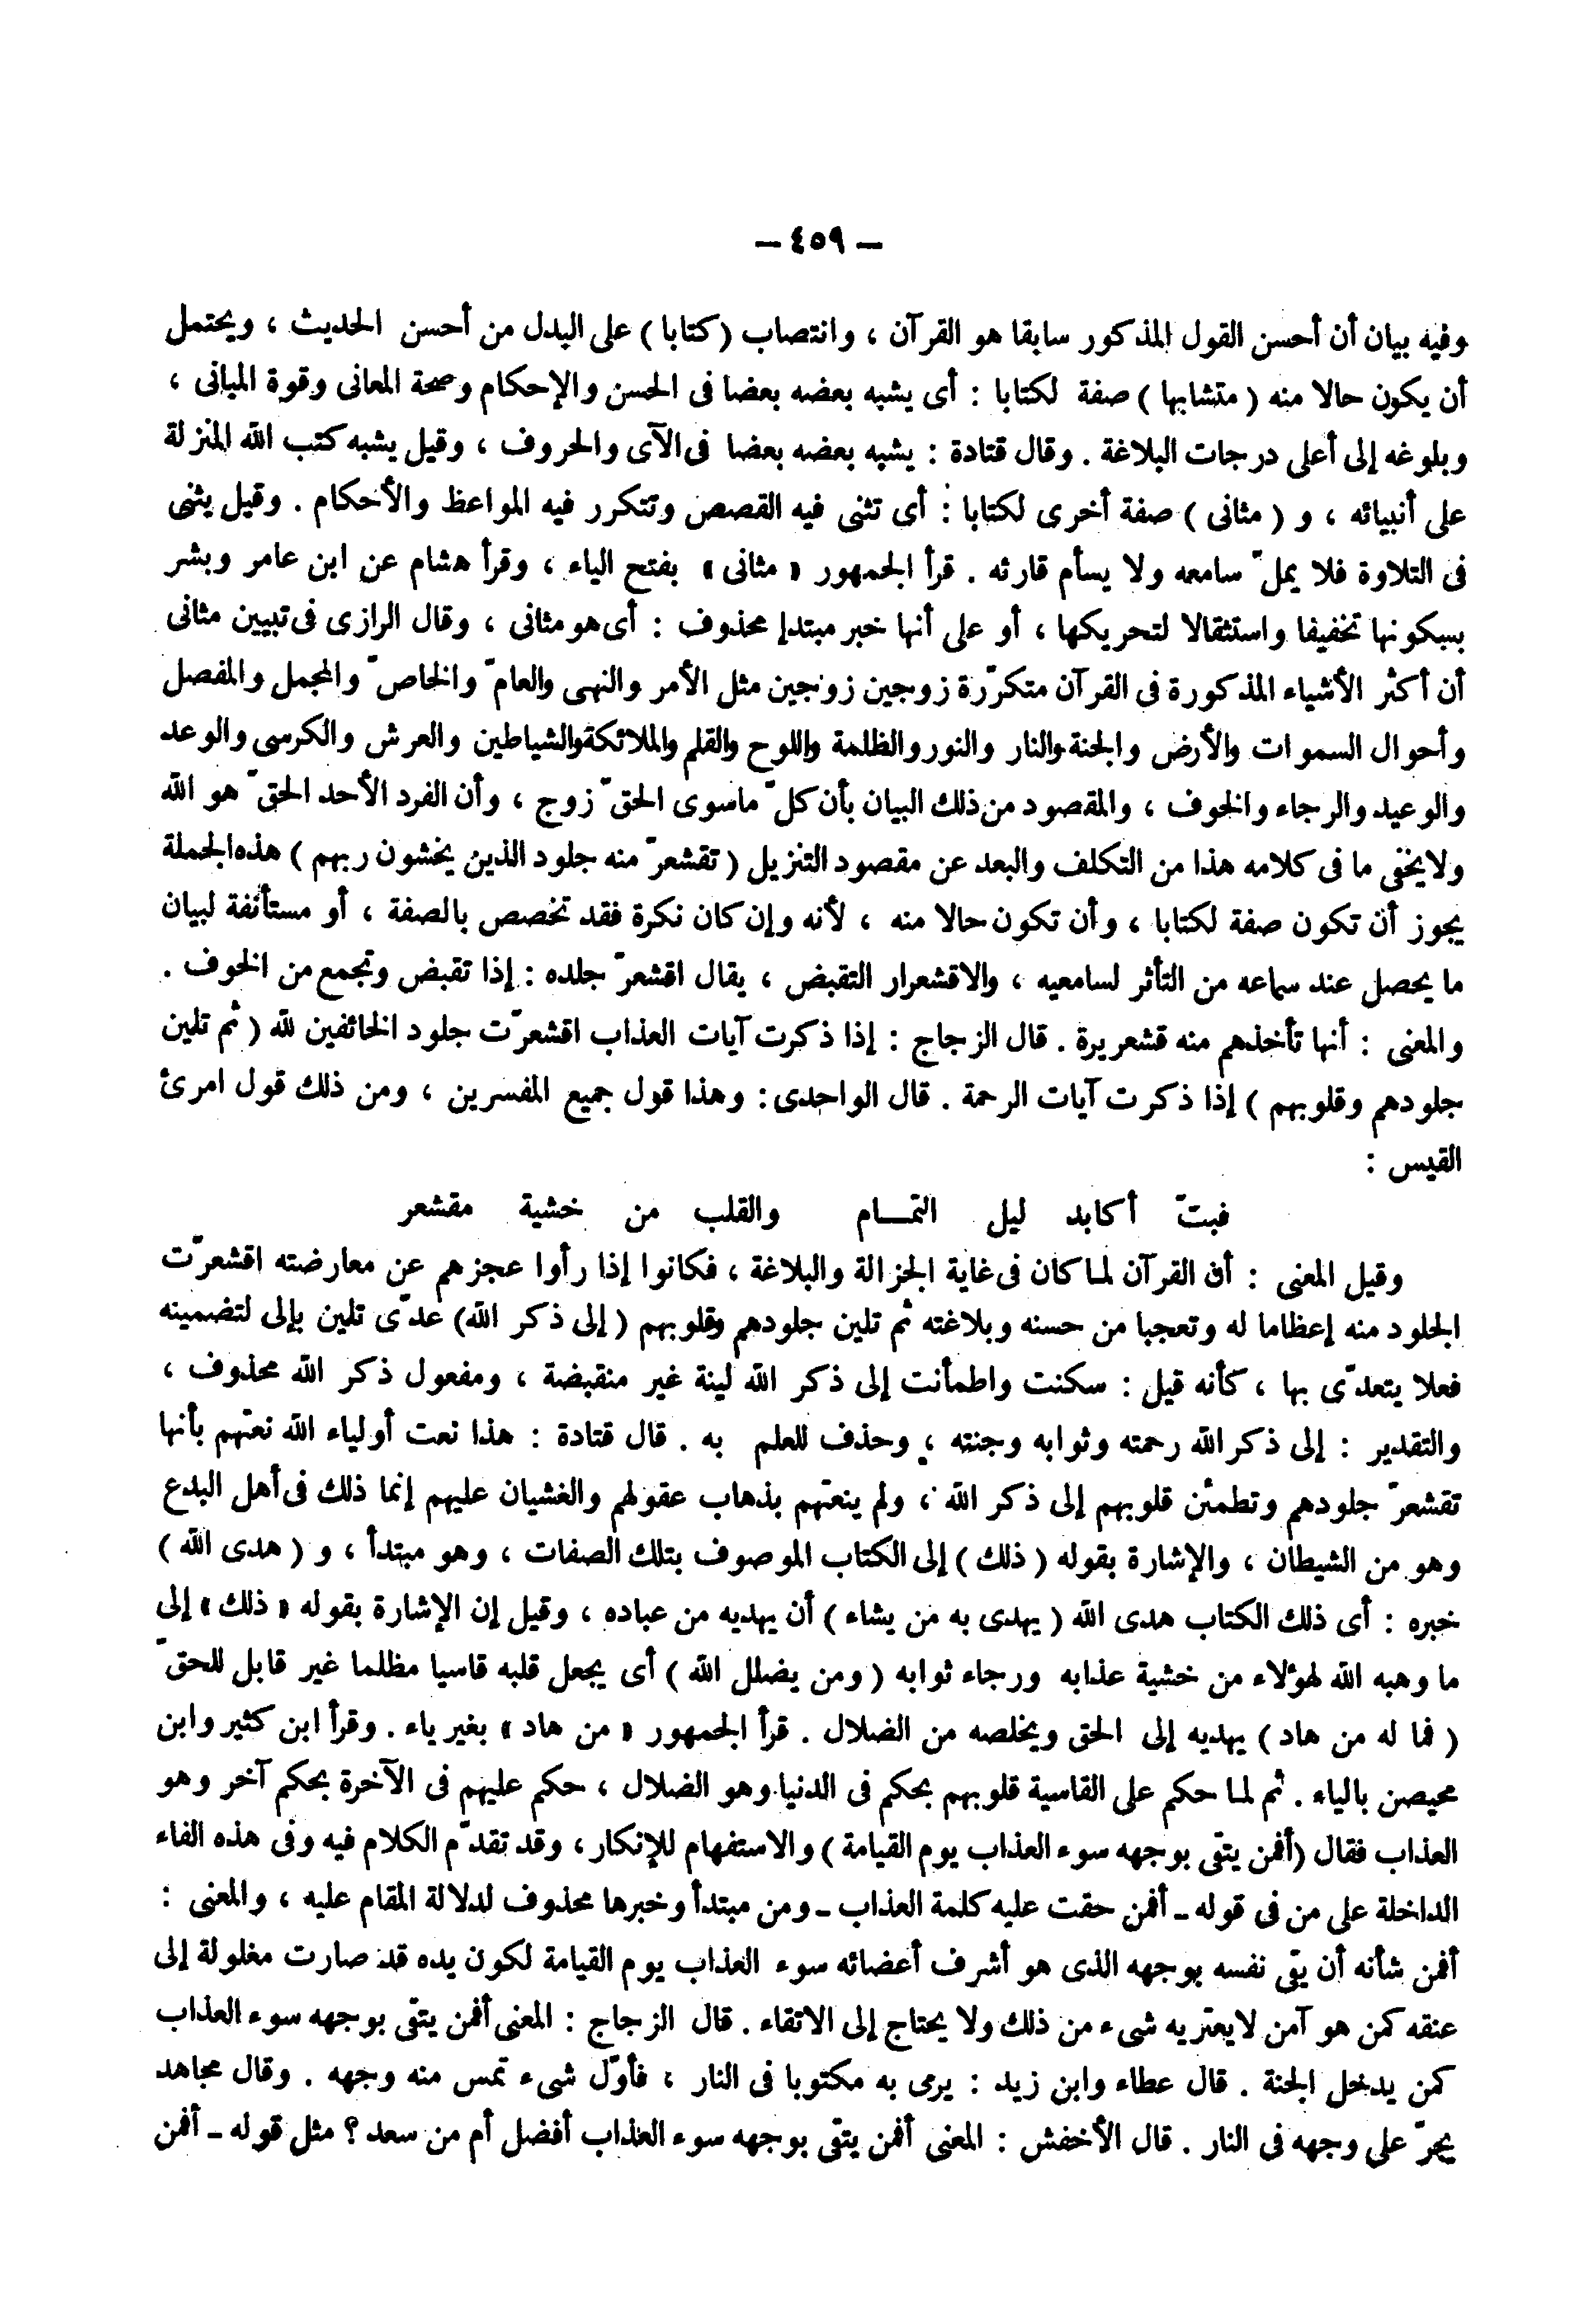 — ٤٥٩ —
وفيه بيان أن أحسن القول المذكور سابقا هو القرآن ، وانتصاب ( كتابا ) على البدل من أحسن الحديث ، ويحتمل
أن يكون حالا منه ( متشابها ) صفة لكتابا : أى يشبه بعضه بعضا فى الحسن والإحكام وصحة المعانى وقوة المبانى ،
وبلوغه إلى أعلى درجات البلاغة . وقال قتادة : يشبه بعضه بعضا فى الآى والحروف ، وقيل يشبه كتب الله المنزلة
على أنبيائه ، و ( مثانى ) صفة أخرى لكتابا : أى تثنى فيه القصص وتتكرر فيه المواعظ والأحكام . وقيل يثنى
فى التلاوة فلا يملّ سامعه ولا يسأم قارئه . قرأ الجمهور « مثانى » بفتح الياء ، وقرأ هشام عن ابن عامر وبشر
بسكونها تخفيفا واستثقالا لتحريكها ، أو على أنها خبر مبتدإ محذوف : أى هو مثانى ، وقال الرازى فى تبيين مثانى
أن أكثر الأشياء المذكورة فى القرآن متكرّرة زوجين زوجين مثل الأمر والنهى والعامّ والخاصّ والمجمل والمفصل
وأحوال السموات والأرض والجنة والنار والنور والظلمة واللوح والقلم والملائكة والشياطين والعرش والكرسى والوعد
والوعيد والرجاء والخوف ، والمقصود من ذلك البيان بأن كلّ ماسوى الحقّ زوج ، وأن الفرد الأحد الحقّ هو الله
ولا يخفى ما فى كلامه هذا من التكلف والبعد عن مقصود التنزيل ( تقشعرّ منه جلود الذين يخشون ربهم ) هذه الجملة
يجوز أن تكون صفة لكتابا ، وأن تكون حالا منه ، لأنه وإن كان نكرة فقد تخصص بالصفة ، أو مستأنفة لبيان
ما يحصل عند سماعه من التأثر لسامعيه ، والاقشعرار التقبض ، يقال اقشعرّ جلده : إذا تقبض وتجمع من الخوف .
والمعنى : أنها تأخذهم منه قشعريرة . قال الزجاج : إذا ذكرت آيات العذاب اقشعرّت جلود الخائفين لله ( ثم تلين
جلودهم وقلوبهم ) إذا ذكرت آيات الرحمة . قال الواحدى : وهذا قول جميع المفسرين ، ومن ذلك قول امرئ
القيس :
فبتّ أكابد ليل التمـــام والقلب من خشية مقشعر
وقيل المعنى : أن القرآن لما كان فى غاية الجزالة والبلاغة ، فكانوا إذا رأوا عجزهم عن معارضته اقشعرّت
الجلود منه إعظاما له وتعجبا من حسنه وبلاغته ثم تلين جلودهم وقلوبهم ( إلى ذكر الله ) عدّى تلين بإلى لتضمينه
فعلا يتعدّى بها ، كأنه قيل : سكنت واطمأنت إلى ذكر الله لينة غير منقبضة ، ومفعول ذكر الله محذوف ،
والتقدير : إلى ذكر الله رحمته وثوابه وجنته ، وحذف للعلم به . قال قتادة : هذا نعت أولياء الله نعتهم بأنها
تقشعرّ جلودهم وتطمئن قلوبهم إلى ذكر الله ، ولم ينعتهم بذهاب عقولهم والغشيان عليهم إنما ذلك فى أهل البدع
وهو من الشيطان ، والإشارة بقوله ( ذلك ) إلى الكتاب الموصوف بتلك الصفات ، وهو مبتدأ ، و ( هدى الله )
خبره : أى ذلك الكتاب هدى الله ( يهدى به من يشاء ) أن يهديه من عباده ، وقيل إن الإشارة بقوله « ذلك » إلى
ما وهبه الله لهؤلاء من خشية عذابه ورجاء ثوابه ( ومن يضلل الله ) أى يجعل قلبه قاسيا مظلما غير قابل للحقّ
( فما له من هاد ) يهديه إلى الحق ويخلصه من الضلال . قرأ الجمهور « من هاد » بغير ياء . وقرأ ابن كثير وابن
محيصن بالياء . ثم لما حكم على القاسية قلوبهم بحكم فى الدنيا وهو الضلال ، حكم عليهم فى الآخرة بحكم آخر وهو
العذاب فقال ( أفمن يتقى بوجهه سوء العذاب يوم القيامة ) والاستفهام للإنكار ، وقد تقدّم الكلام فيه وفى هذه الفاء
الداخلة على من فى قوله ـ أفمن حقت عليه كلمة العذاب ـ ومن مبتدأ وخبرها محذوف لدلالة المقام عليه ، والمعنى :
أفمن شأنه أن يقى نفسه بوجهه الذى هو أشرف أعضائه سوء العذاب يوم القيامة لكون يده قد صارت مغلولة إلى
عنقه كمن هو آمن لا يعتريه شىء من ذلك ولا يحتاج إلى الاتقاء . قال الزجاج : المعنى أفمن يتقى بوجهه سوء العذاب
كمن يدخل الجنة . قال عطاء وابن زيد : يرمى به مكتوبا فى النار ، فأوّل شىء تمس منه وجهه . وقال مجاهد
يجرّ على وجهه فى النار . قال الأخفش : المعنى أفمن يتقى بوجهه سوء العذاب أفضل أم من سعد ؟ مثل قوله ـ أفمن